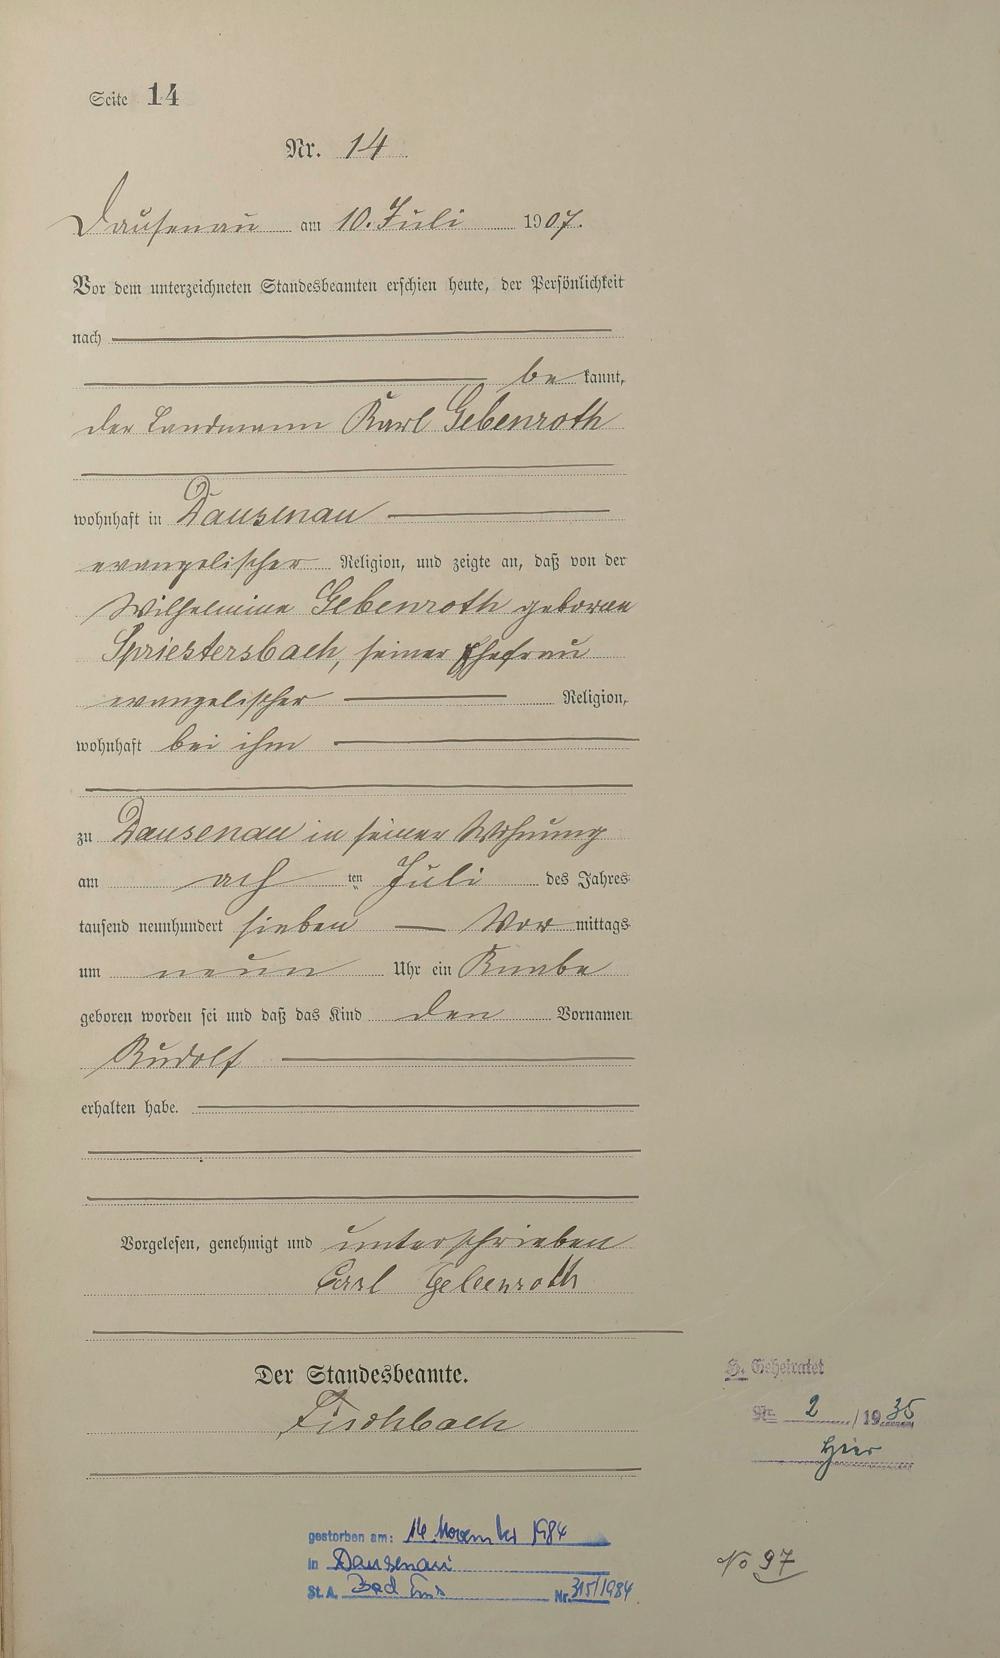 Seite 14
Nr. 14
Dausenau am 10. Juli 1907.
Vor dem unterzeichneten Standesbeamten erschien heute, der Persönlichkeit
nach
be kannt,
der Landmann Karl Gebenroth
wohnhaft in Dausenau
evangelischer Religion, und zeigte an, daß von der
Wilhelmine Gebenroth geborene
Spriestersbach, seiner Ehefrau
evangelischer Religion,
wohnhaft bei ihm
zu Dausenau in seiner Wohnung
am ach ten Juli des Jahres
tausend neunhundert sieben Vor mittags
um neun Uhr ein Knabe
geboren worden sei und daß das Kind den Vornamen
Rudolf
erhalten habe.
Vorgelesen, genehmigt und unterschrieben
Carl Gebenroth
Der Standesbeamte.
Fischbach
H. Geheiratet
Nr. 2 / 1935
hier
gestorben am: 14. November 1984
in Dausenau
St. A. Bad Ems Nr. 315/1984
No 97